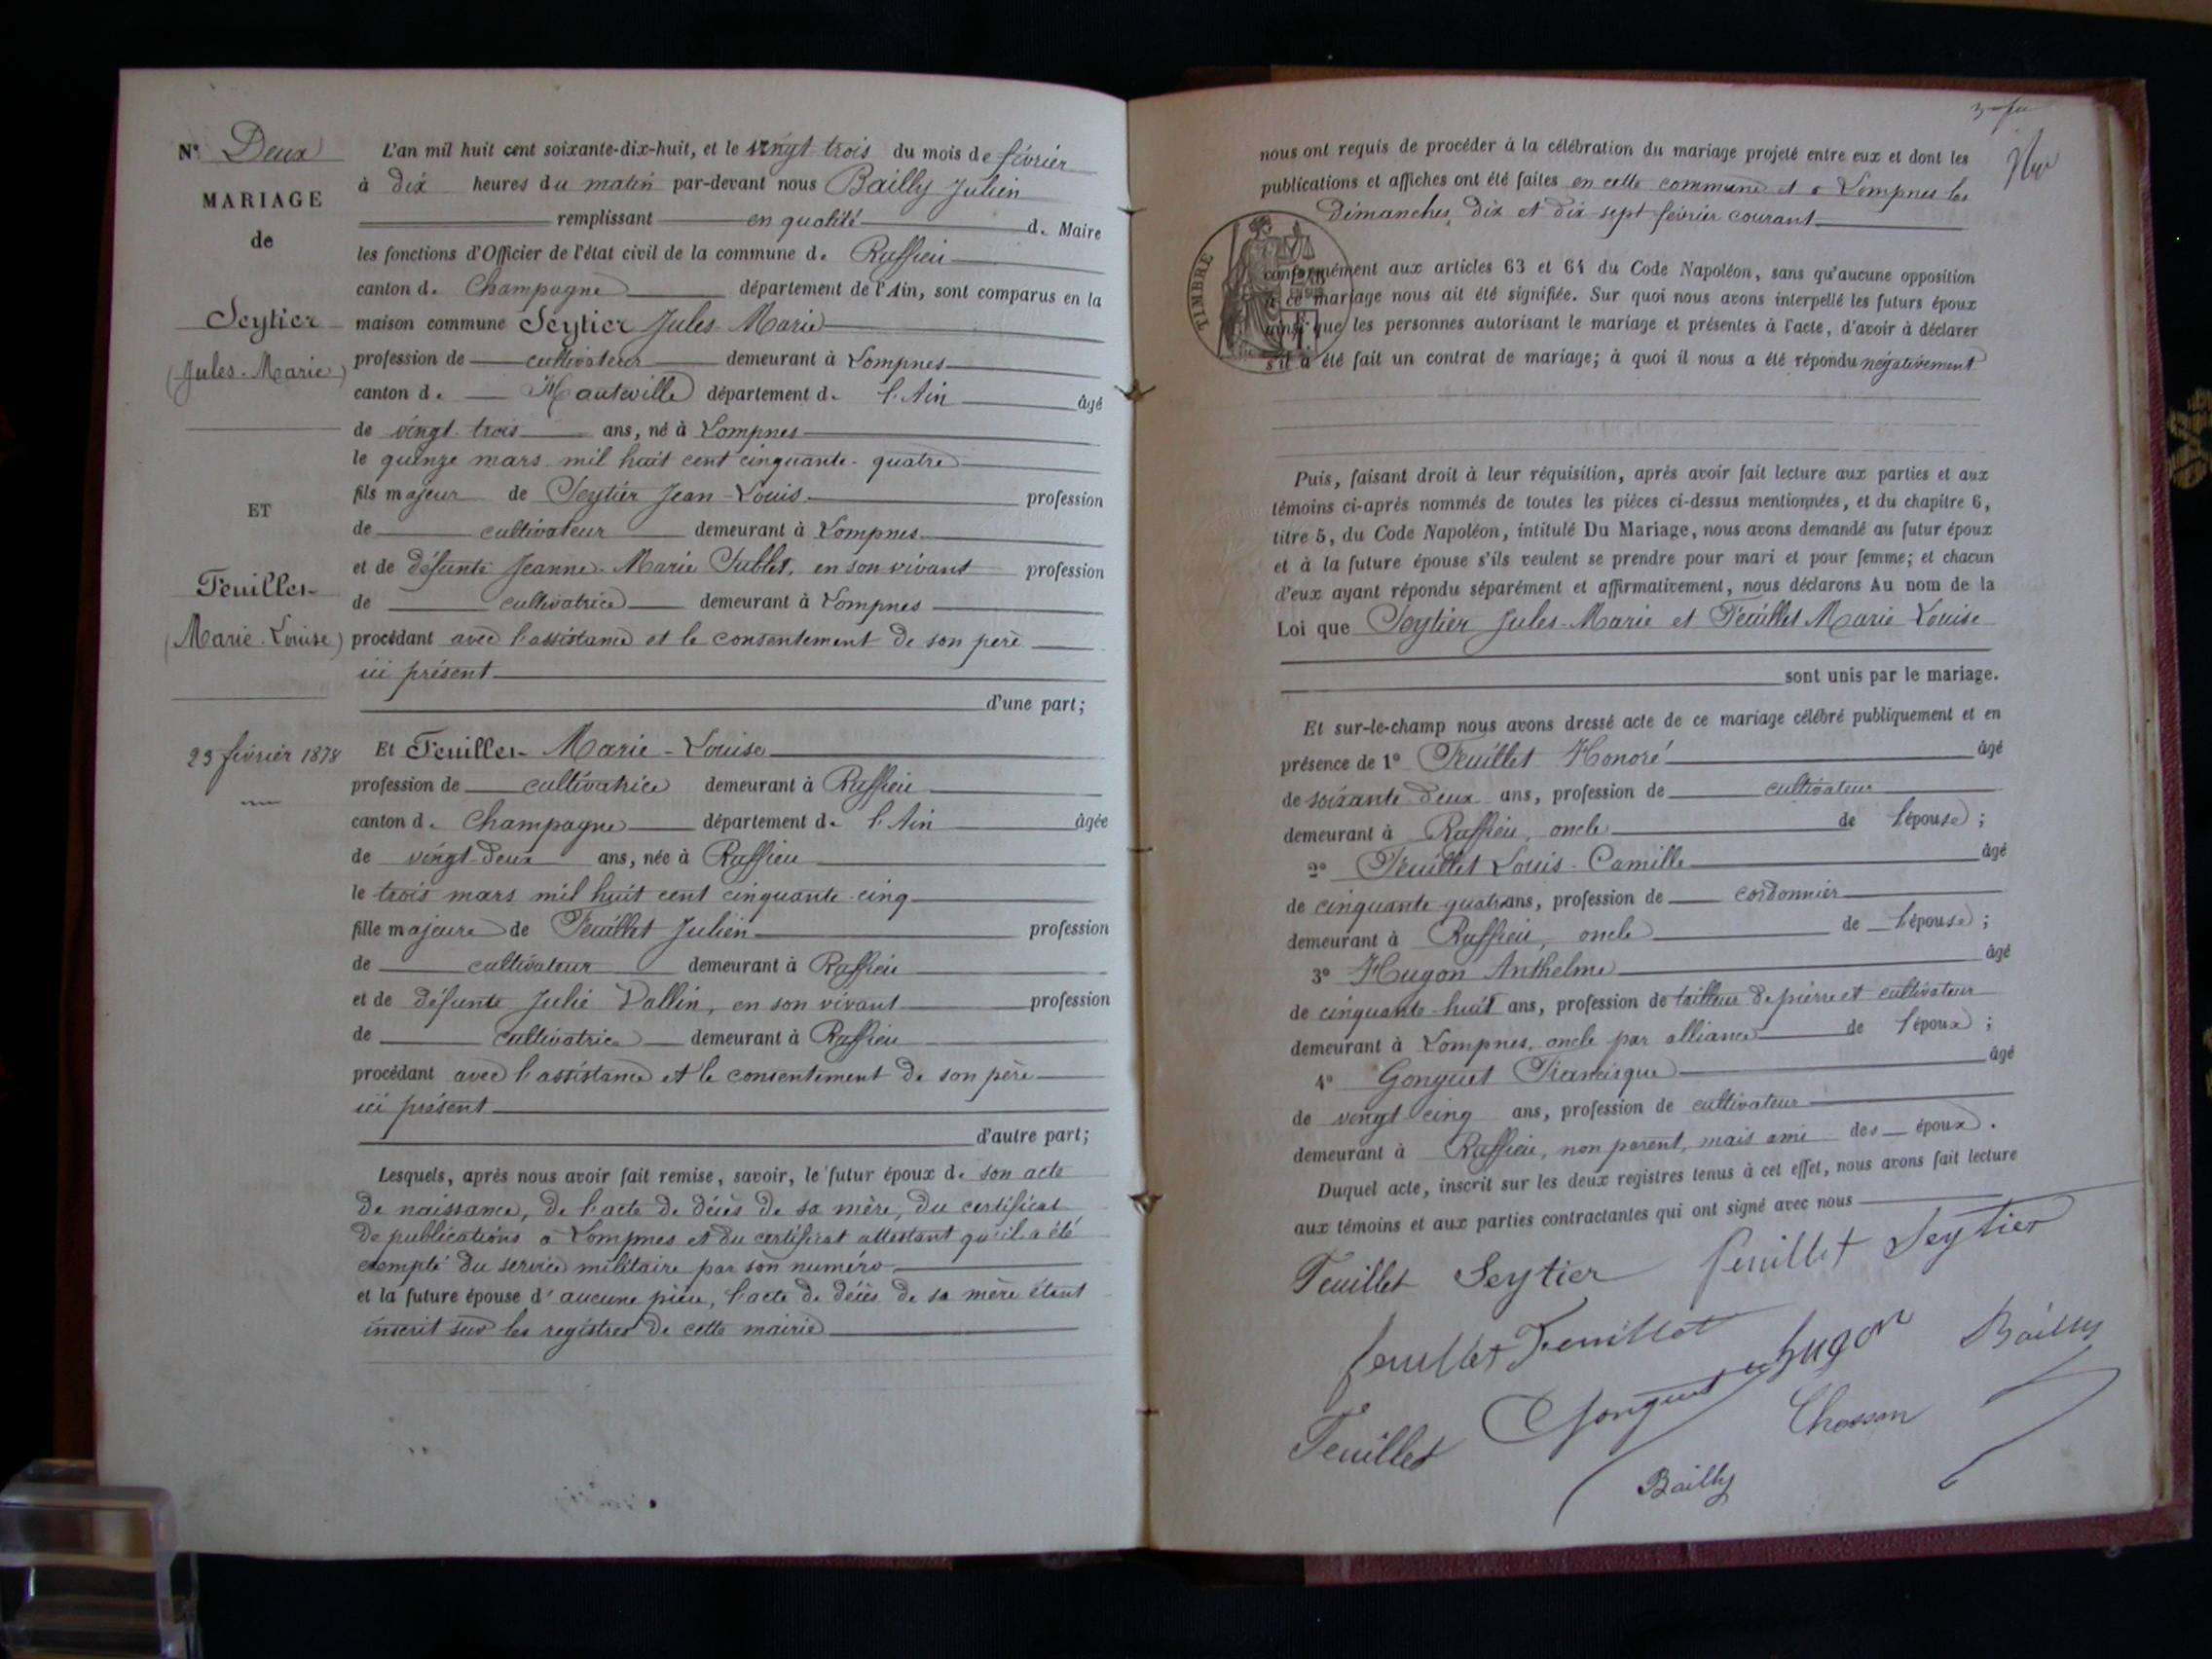 N° Deux
MARIAGE
de
Seytier
(Jules-Marie)
ET
Feuillet
(Marie-Louise)
23 février 1878
L'an mil huit cent soixante-dix-huit, et le vingt trois du mois de février
à dix heures du matin par-devant nous Bailly Julien
remplissant en qualité de Maire
les fonctions d'Officier de l'état civil de la commune de Ruffieu
canton de Champagne département de l'Ain, sont comparus en la
maison commune Seytier Jules-Marie
profession de cultivateur demeurant à Lompnes
canton de Hauteville département de l'Ain âgé
de vingt-trois ans, né à Lompnes
le quinze mars mil huit cent cinquante-quatre
fils majeur de Seytier Jean-Louis profession
de cultivateur demeurant à Lompnes
et de défunte Jeanne-Marie Sublet, en son vivant profession
de cultivatrice demeurant à Lompnes
procédant avec l'assistance et le consentement de son père
ici présent
d'une part;
Et Feuillet Marie-Louise
profession de cultivatrice demeurant à Ruffieu
canton de Champagne département de l'Ain âgée
de vingt-deux ans, née à Ruffieu
le trois mars mil huit cent cinquante-cinq
fille majeure de Feuillet Julien profession
de cultivateur demeurant à Ruffieu
et de défunte Julie Vallin, en son vivant profession
de cultivatrice demeurant à Ruffieu
procédant avec l'assistance et le consentement de son père
ici présent
d'autre part;
Lesquels, après nous avoir fait remise, savoir, le futur époux de son acte
de naissance, de l'acte de décès de sa mère, du certificat
de publications à Lompnes et du certificat attestant qu'il a été
exempté du service militaire par son numéro
et la future épouse d'aucune pièce, l'acte de décès de sa mère étant
inscrit sur les registres de cette mairie
nous ont requis de procéder à la célébration du mariage projeté entre eux et dont les
publications et affiches ont été faites en cette commune et à Lompnes les
Dimanches, dix et dix-sept février courant
TIMBRE
conformément aux articles 63 et 64 du Code Napoléon, sans qu'aucune opposition
à ce mariage nous ait été signifiée. Sur quoi nous avons interpellé les futurs époux
ainsi que les personnes autorisant le mariage et présentes à l'acte, d'avoir à déclarer
s'il a été fait un contrat de mariage; à quoi il nous a été répondu négativement
Puis, faisant droit à leur réquisition, après avoir fait lecture aux parties et aux
témoins ci-après nommés de toutes les pièces ci-dessus mentionnées, et du chapitre 6,
titre 5, du Code Napoléon, intitulé Du Mariage, nous avons demandé au futur époux
et à la future épouse s'ils veulent se prendre pour mari et pour femme; et chacun
d'eux ayant répondu séparément et affirmativement, nous déclarons Au nom de la
Loi que Seytier Jules-Marie et Feuillet Marie Louise
sont unis par le mariage.
Et sur-le-champ nous avons dressé acte de ce mariage célébré publiquement et en
présence de 1° Feuillet Honoré âgé
de soixante-deux ans, profession de cultivateur
demeurant à Ruffieu, oncle de l'épouse;
2° Feuillet Louis-Camille âgé
de cinquante-quatre ans, profession de cordonnier
demeurant à Ruffieu, oncle de l'épouse;
3° Hugon Anthelme âgé
de cinquante-huit ans, profession de tailleur de pierre et cultivateur
demeurant à Lompnes, oncle par alliance de l'époux;
4° Gonguet Francisque âgé
de vingt-cinq ans, profession de cultivateur
demeurant à Ruffieu, non parent, mais ami des époux.
Duquel acte, inscrit sur les deux registres tenus à cet effet, nous avons fait lecture
aux témoins et aux parties contractantes qui ont signé avec nous
Feuillet Seytier feuillet Seytier
feuillet Feuillet hugon Bailly
Feuillet Gonguet
Bailly